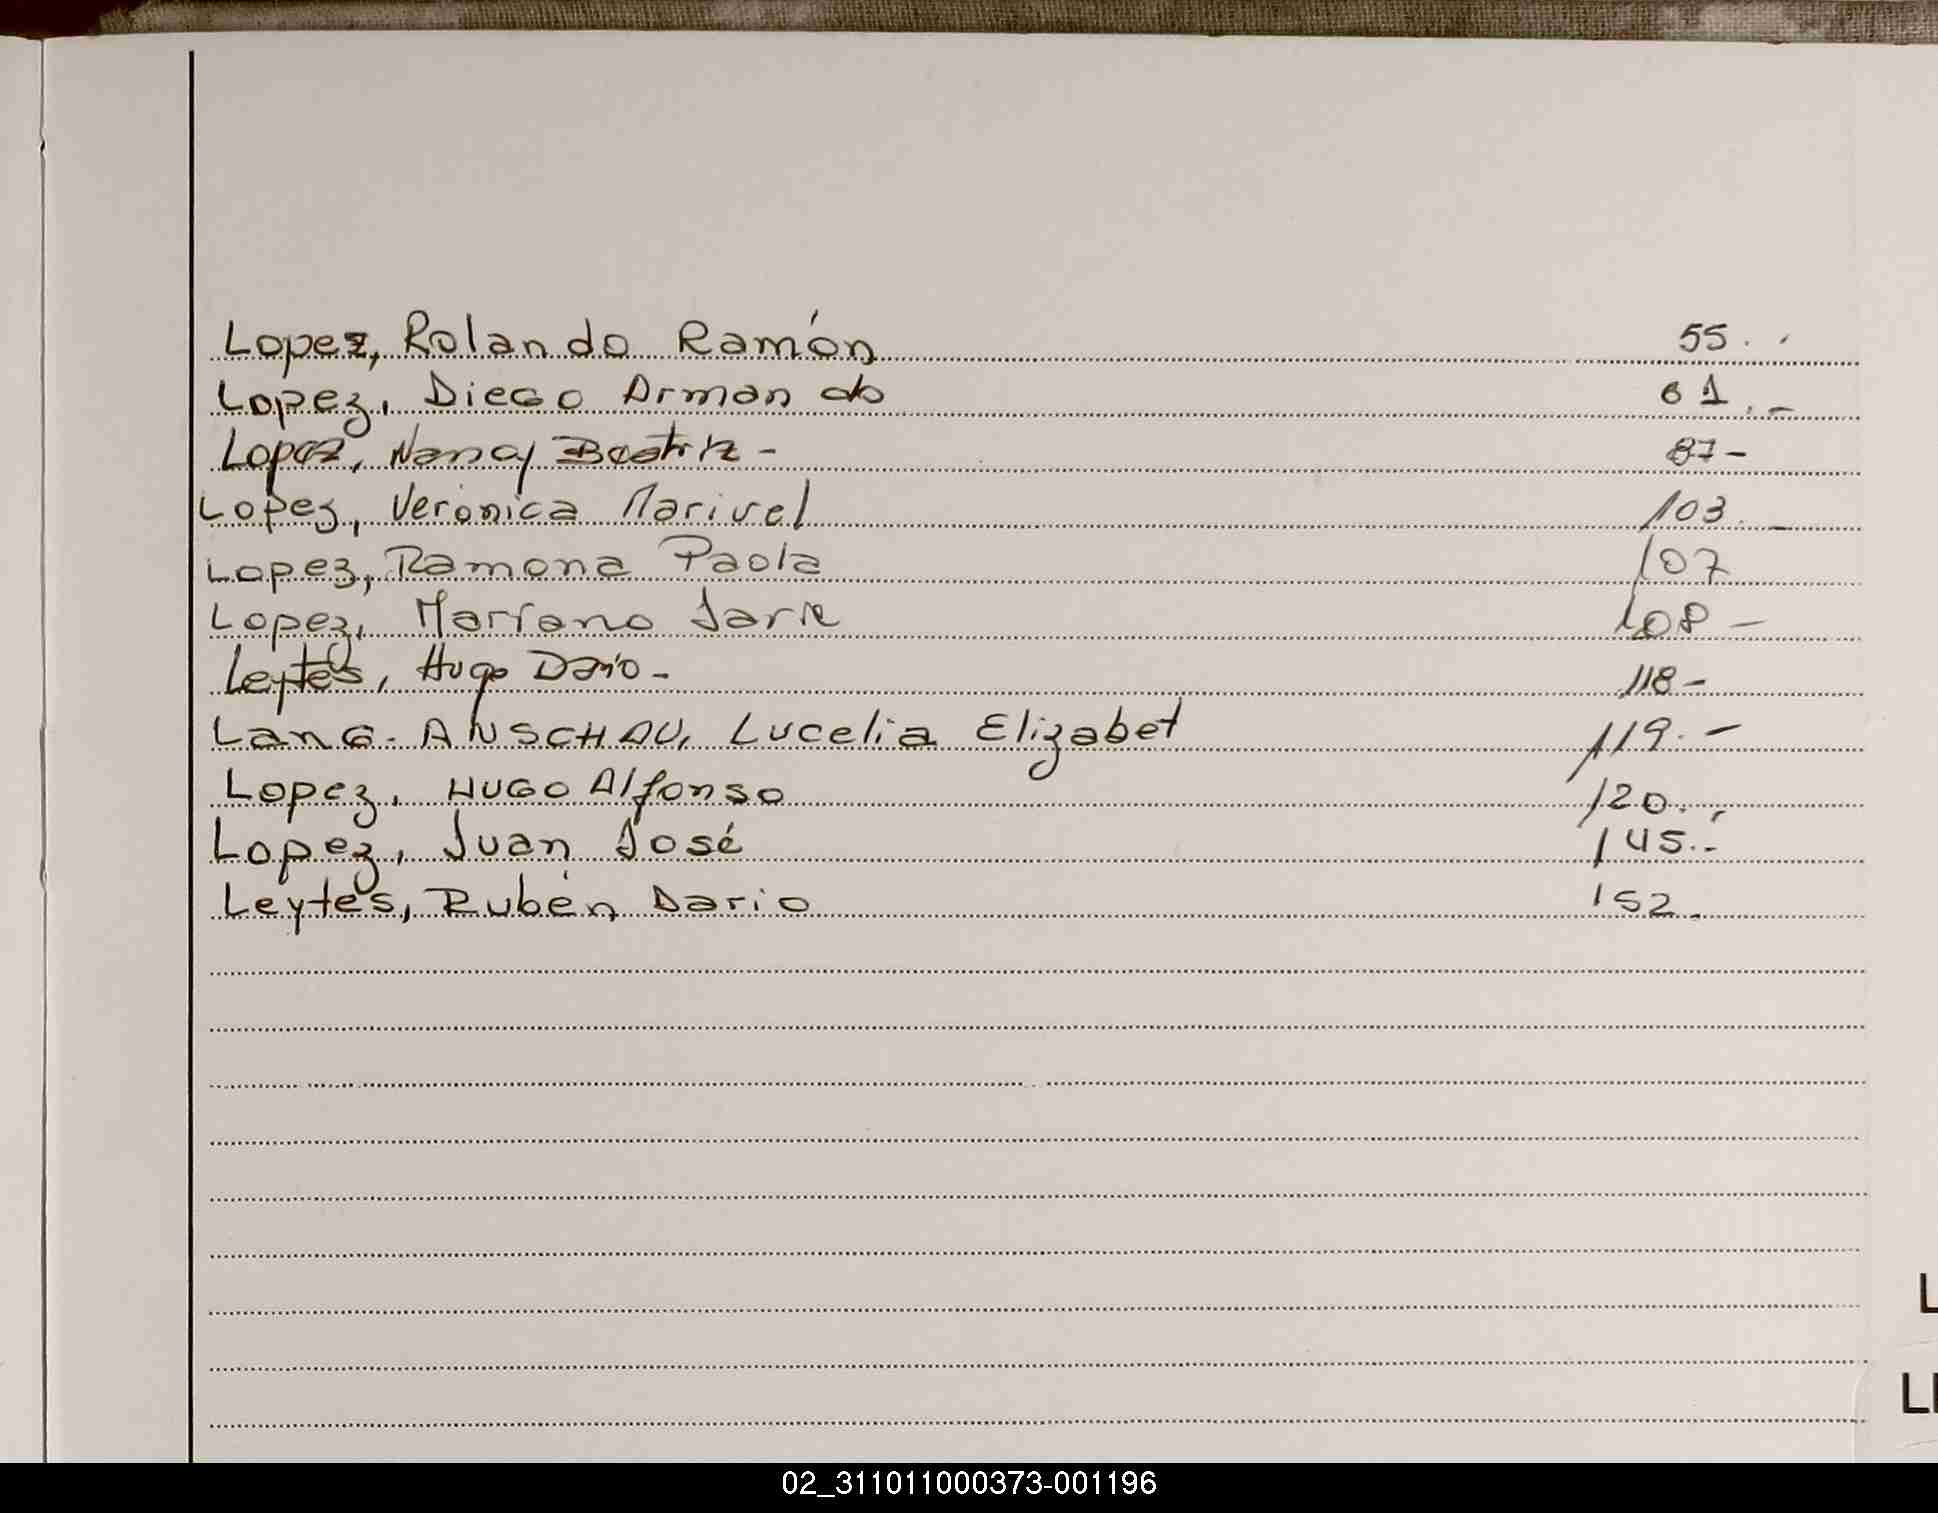 Lopez, Rolando Ramón 55.
Lopez, Diego Armando 61.-
Lopez, Nancy Beatriz - 87-
Lopez, Verónica Marivel 103.-
Lopez, Ramona Paola 107
Lopez, Mariano 108-
Leytes, Hugo Dario - 118-
Lang-ANSCHAU, Lucelia Elizabet 119.-
Lopez, Hugo Alfonso 120.-
Lopez, Juan José 145.-
Leytes, Rubén Dario 152.
L
LL
02_311011000373-001196